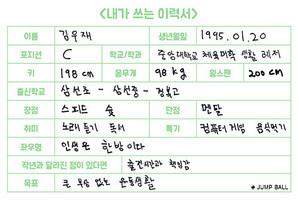 <내가 쓰는 이력서>
이름 김우재 생년월일 1995.01.20
포지션 C 학교/학과 중앙대학교 체육대학 생활 레저
키 198 cm 몸무게 98 kg 윙스팬 200 cm
출신학교 삼선초 - 삼선중 - 경복고
장점 스피드 슛 단점 멘탈
취미 노래 듣기 독서 특기 컴퓨터 게임 음식먹기
좌우명 인생은 한방이다
작년과 달라진 점이 있다면 출전시간과 책임감
목표 큰 부상 없는 운동생활
# JUMP BALL